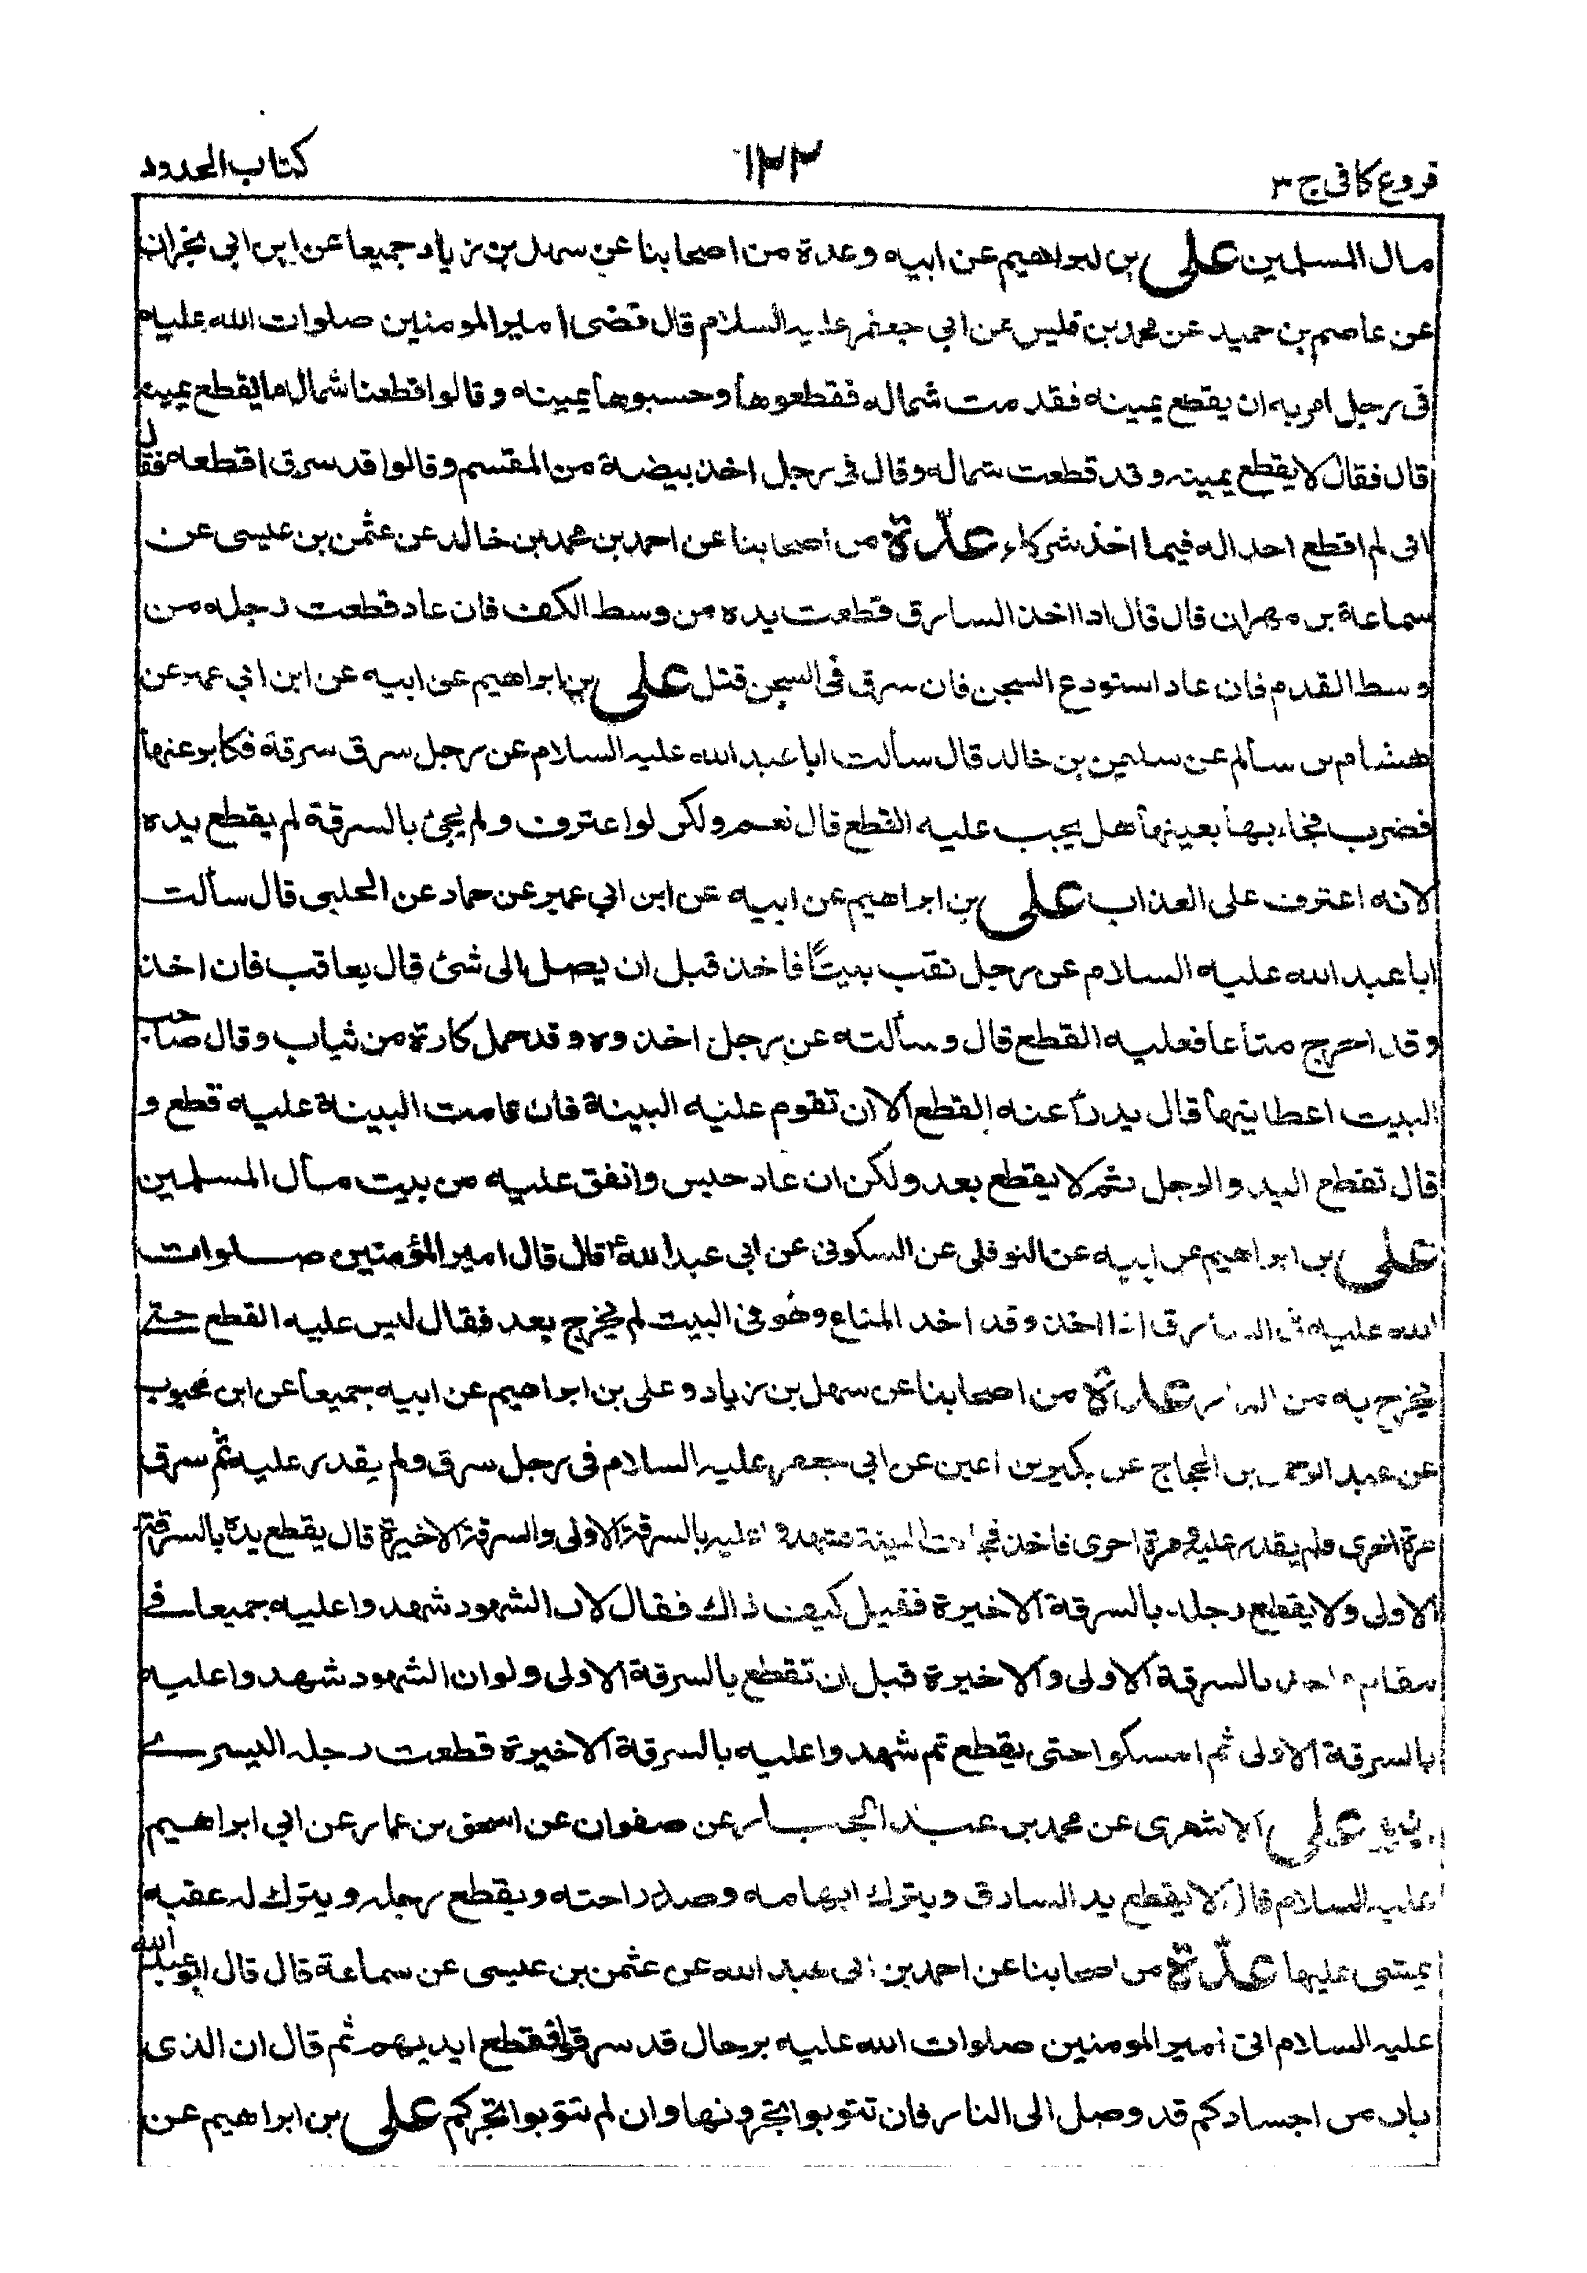 فروع كافى ج ٣
١٢٢
كتاب الحدود
مال المسلمين على بن ابراهيم عن ابيه وعدة من اصحابنا عن سهل بن زياد جميعا عن ابن ابي نجران
عن عاصم بن حميد عن محمد بن قيس عن ابي جعفر عليه السلام قال قضى امير المومنين صلوات الله عليه
فى رجل امر به ان يقطع يمينه فقدمت شماله فقطعوها وحسبوها يمينه وقالوا قطعنا شماله ايقطع يمينه
قال فقال لا يقطع يمينه وقد قطعت شماله وقال فى رجل اخذ بيضة من المقسم وقالوا قد سرق اقطعه فقال
انى لم اقطع احدا له فيما اخذ شركاء عدة من اصحابنا عن احمد بن محمد بن خالد عن عثمن بن عيسى عن
سماعة بن مهران قال قال اذا اخذ السارق قطعت يده من وسط الكف فان عاد قطعت رجله من
وسط القدم فان عاد استودع السجن فان سرق فى السجن قتل على بن ابراهيم عن ابيه عن ابن ابي عمير عن
هشام بن سالم عن سليمن بن خالد قال سألت ابا عبد الله عليه السلام عن رجل سرق سرقة فكابر عنها
فضرب فجاء بها بعينها هل يجب عليه القطع قال نعم ولكن لو اعترف ولم يجئ بالسرقة لم يقطع يده
لانه اعترف على العذاب على بن ابراهيم عن ابيه عن ابن ابي عمير عن حماد عن الحلبى قال سألت
ابا عبد الله عليه السلام عن رجل نقب بيتًا فاخذ قبل ان يصل الى شئ قال يعاقب فان اخذ
وقد اخرج متاعا فعليه القطع قال وسألته عن رجل اخذوه وقد حمل كارة من ثياب وقال صاحب
البيت اعطانيها قال يدرأ عنه القطع الا ان تقوم عليه البينة فان قامت البينة عليه قطع و
قال تقطع اليد والرجل ثم لا يقطع بعد ولكن ان عاد حبس وانفق عليه من بيت مال المسلمين
على بن ابراهيم عن ابيه عن النوفلى عن السكونى عن ابى عبد الله ع قال قال امير المؤمنين صلوات
الله عليه فى السارق اذا اخذ وقد اخذ المتاع وهو فى البيت لم يخرج بعد فقال ليس عليه القطع حتى
يخرج به من الدار عدة من اصحابنا عن سهل بن زياد وعلى بن ابراهيم عن ابيه جميعا عن ابن محبوب
عن عبد الرحمن بن الحجاج عن بكير بن اعين عن ابي جعفر عليه السلام فى رجل سرق ولم يقدر عليه ثم سرق
مرة اخرى ولم يقدر عليه وسرق مرة اخرى فاخذ فجاءت البينة فشهدوا عليه بالسرقة الاولى والسرقة الاخيرة قال يقطع يده بالسرقة
الاولى ولا يقطع رجله بالسرقة الاخيرة فقيل كيف ذاك فقال لان الشهود شهدوا عليه جميعا فى
مقام واحد بالسرقة الاولى والاخيرة قبل ان تقطع بالسرقة الاولى ولو ان الشهود شهدوا عليه
بالسرقة الاولى ثم امسكوا حتى يقطع ثم شهدوا عليه بالسرقة الاخيرة قطعت رجله اليسرى
على الاشعرى عن محمد بن عبد الجبار عن صفوان عن اسحق بن عمار عن ابي ابراهيم
عليه السلام قال لا يقطع يد السارق ويترك ابهامه وصدر راحته ويقطع رجله ويترك له عقبه
يمشى عليها عدة من اصحابنا عن احمد بن ابى عبد الله عن عثمن بن عيسى عن سماعة قال قال ابو عبد الله
عليه السلام اتى امير المومنين صلوات الله عليه برجال قد سرقوا فقطع ايديهم ثم قال ان الذى
بان من اجسادكم قد وصل الى النار فان تتوبوا تجرونها وان لم تتوبوا تجركم على بن ابراهيم عن